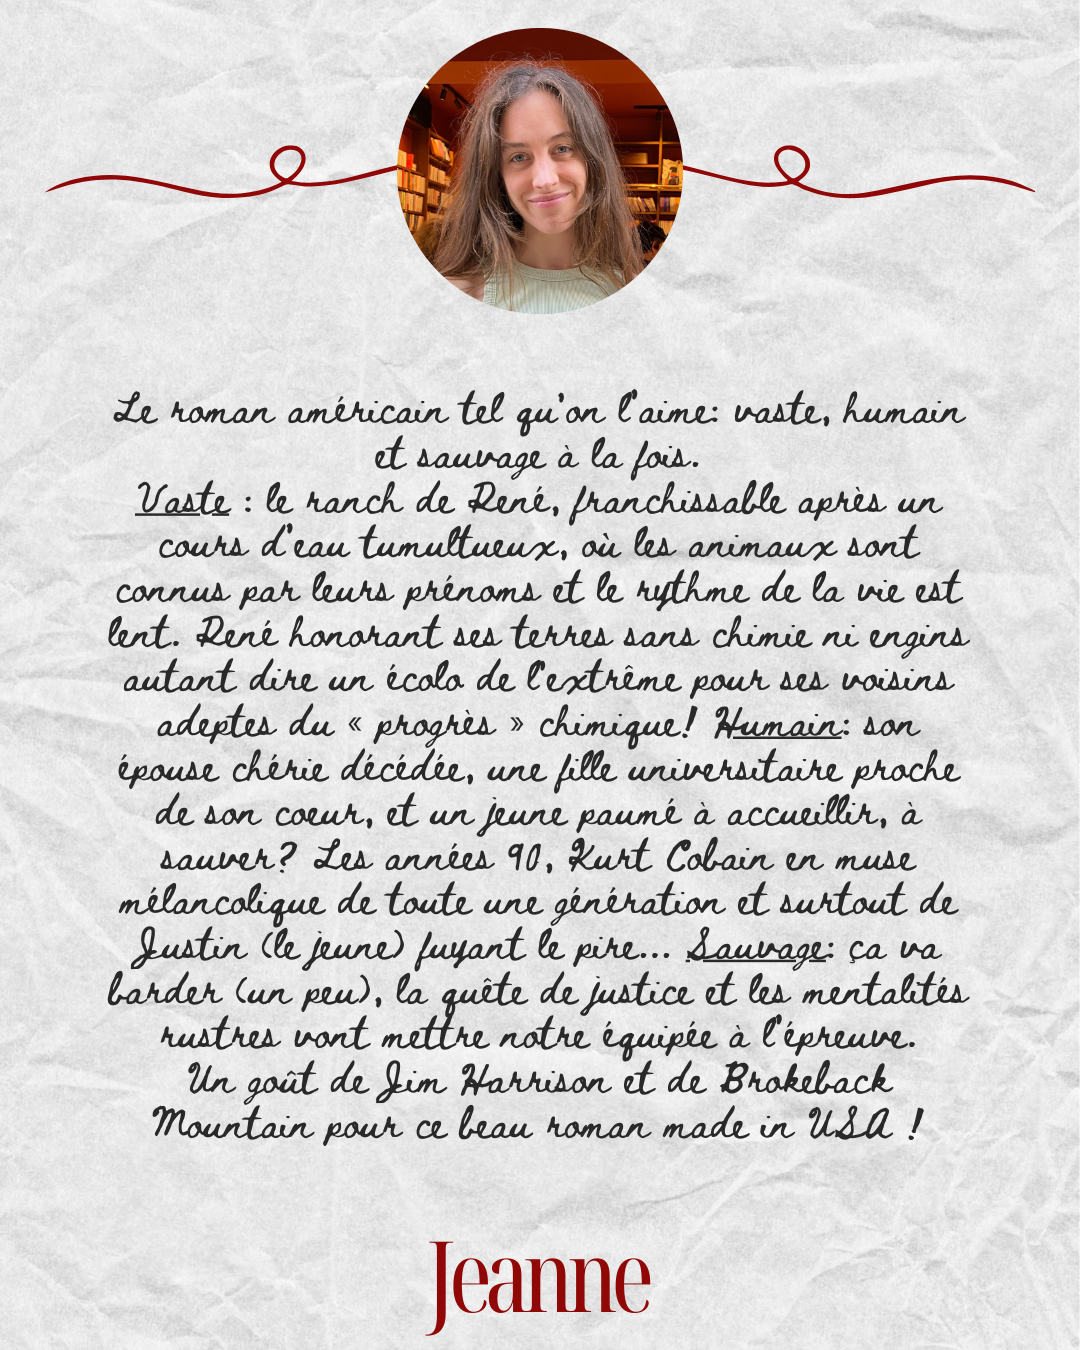 Le roman américain tel qu'on l'aime: vaste, humain
et sauvage à la fois.
Vaste : le ranch de René, franchissable après un
cours d'eau tumultueux, où les animaux sont
connus par leurs prénoms et le rythme de la vie est
lent. René honorant ses terres sans chimie ni engins
autant dire un écolo de l'extrême pour ses voisins
adeptes du « progrès » chimique! Humain: son
épouse chérie décédée, une fille universitaire proche
de son coeur, et un jeune paumé à accueillir, à
sauver? Les années 90, Kurt Cobain en muse
mélancolique de toute une génération et surtout de
Justin (le jeune) fuyant le pire... Sauvage: ça va
barder (un peu), la quête de justice et les mentalités
rustres vont mettre notre équipée à l'épreuve.
Un goût de Jim Harrison et de Brokeback
Mountain pour ce beau roman made in USA !
Jeanne